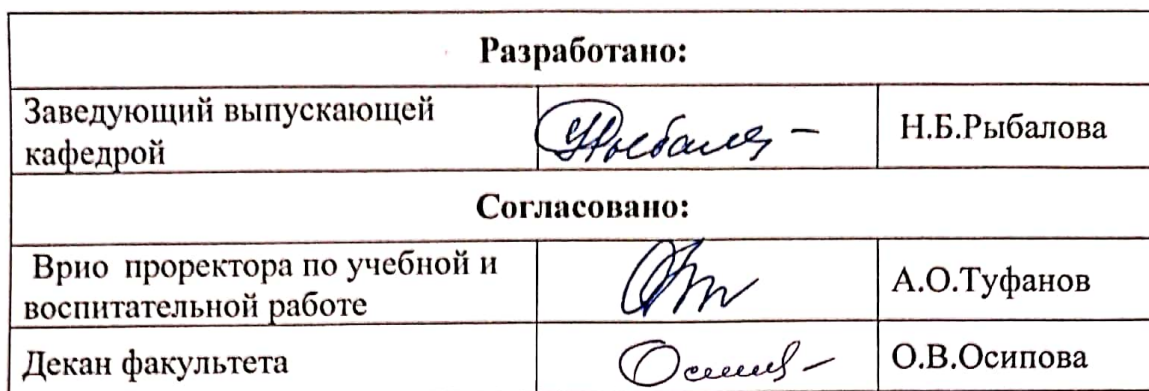 Разработано:
Заведующий выпускающей
кафедрой
Н.Б.Рыбалова
Согласовано:
Врио проректора по учебной и
воспитательной работе
А.О.Туфанов
Декан факультета
О.В.Осипова